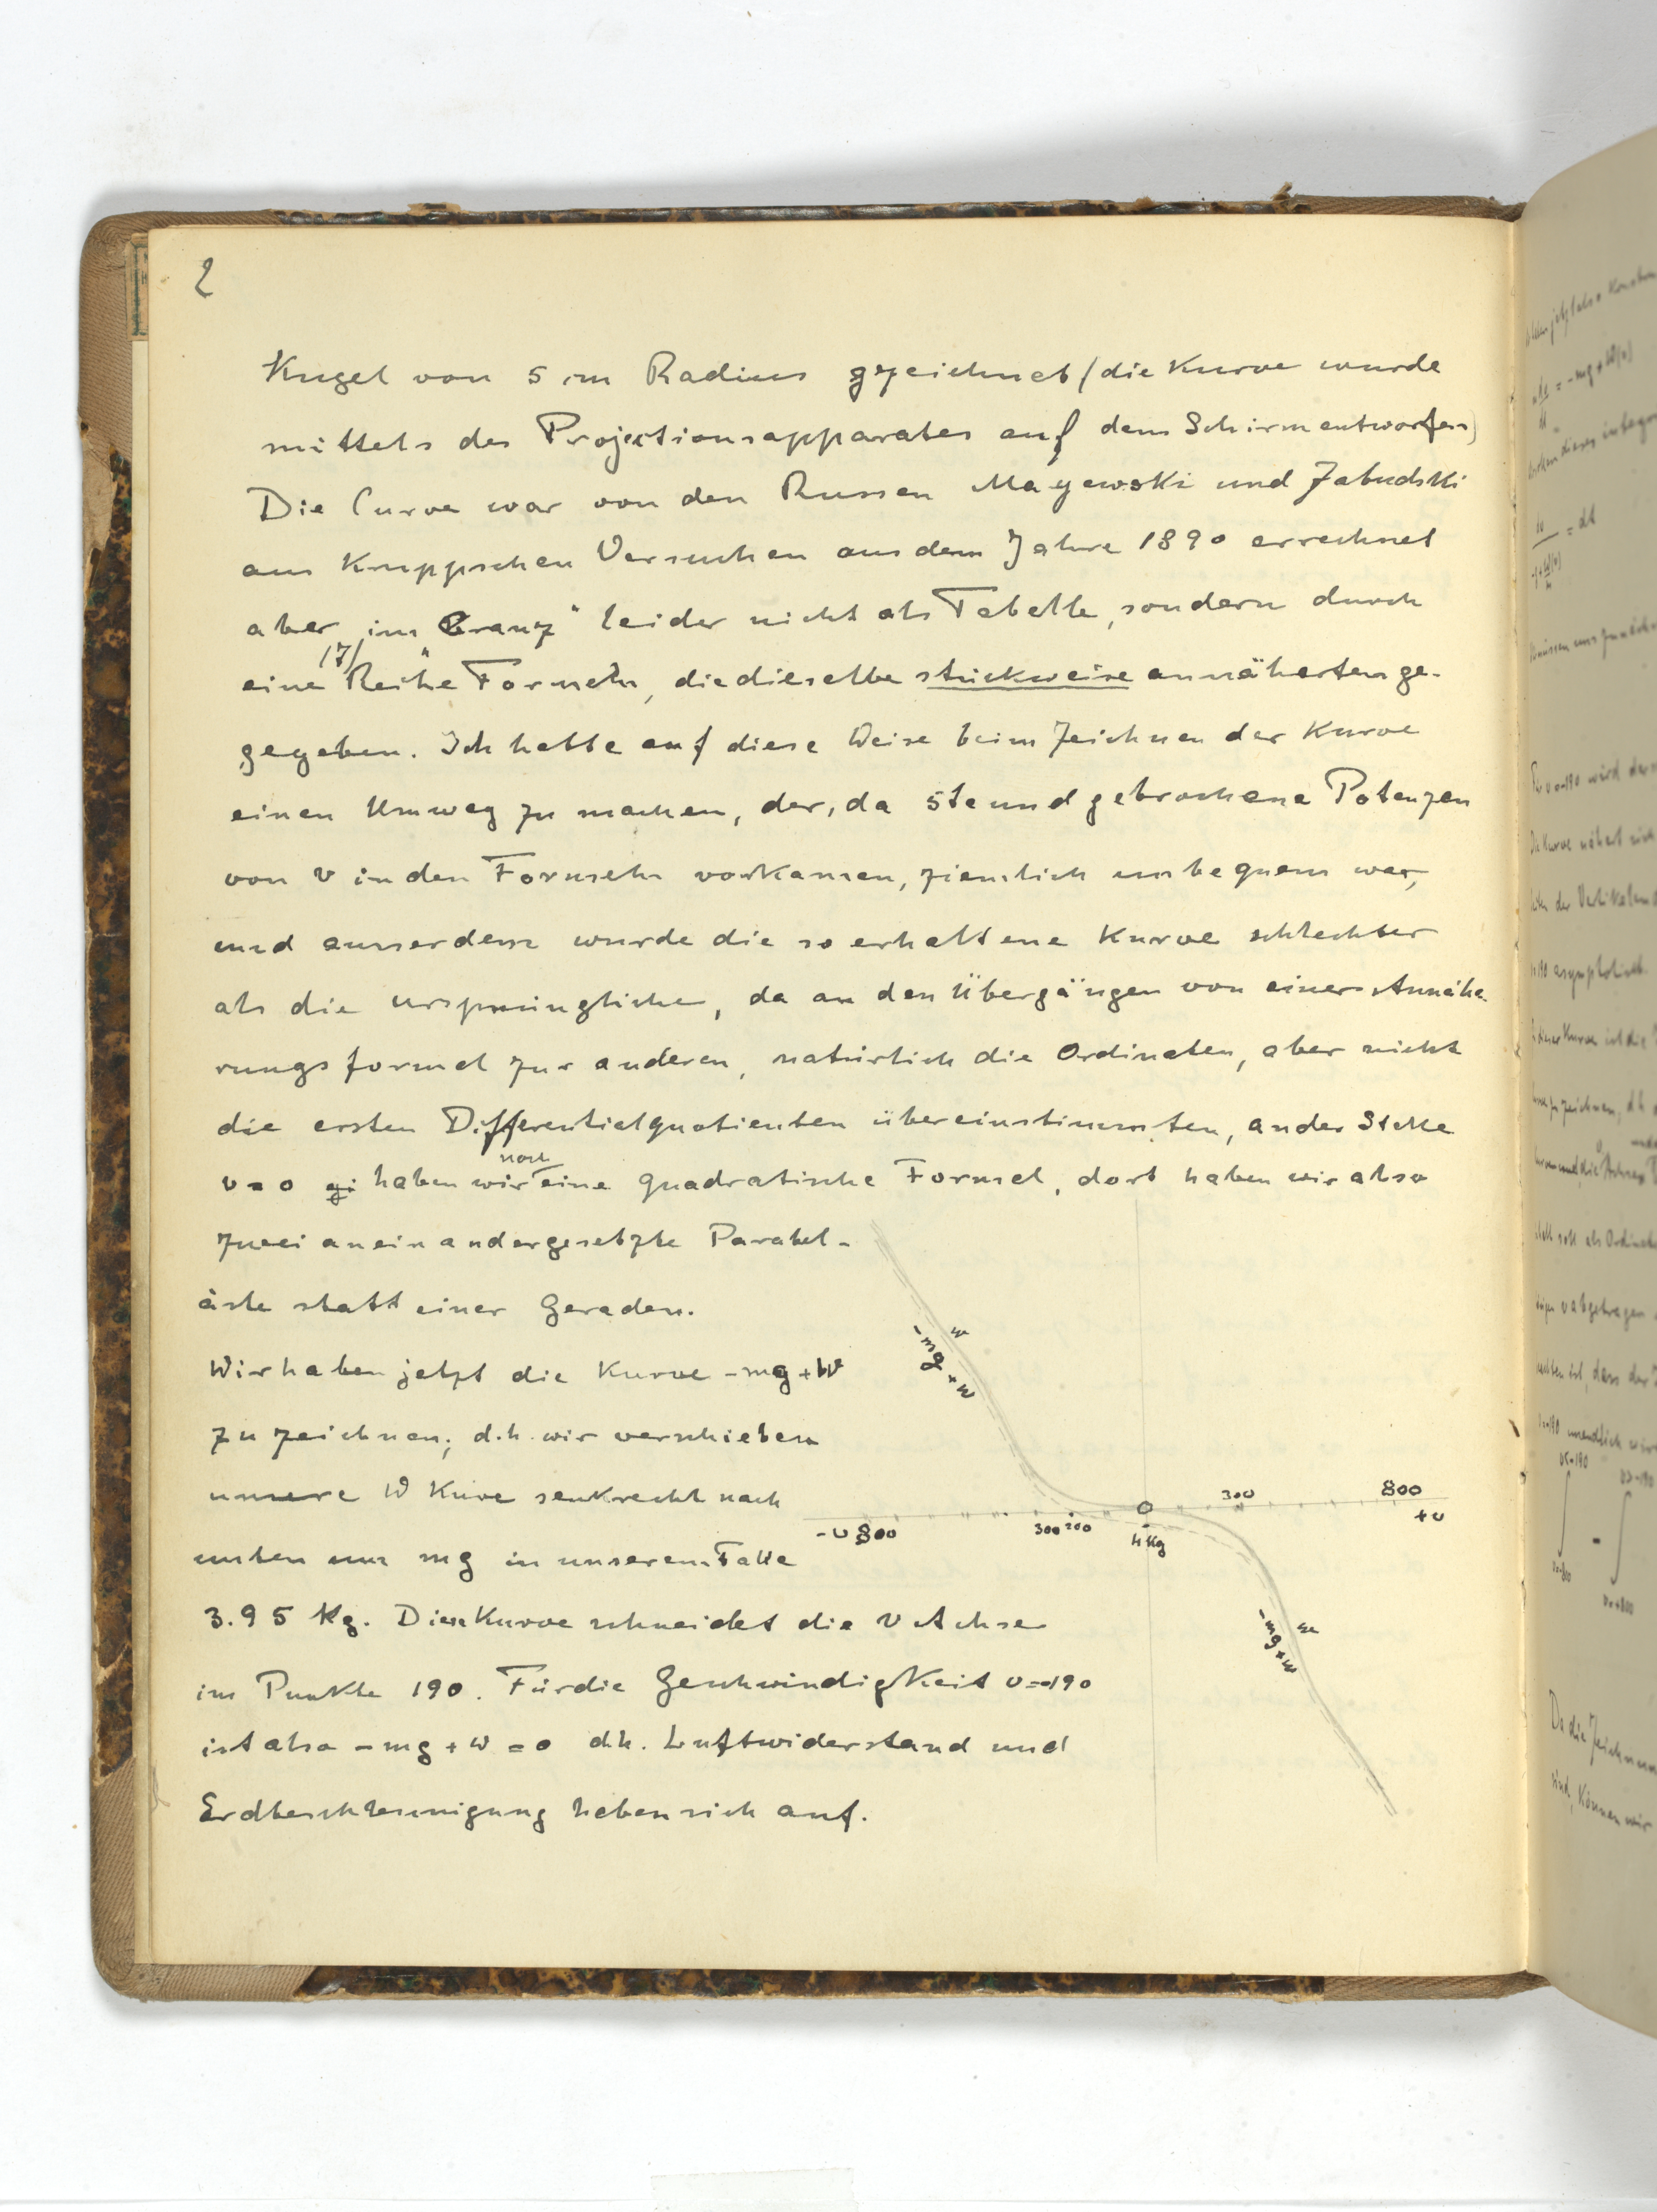 2
Kugel von 5 cm Radius gezeichnet (die Kurve wurde
mittels des Projectionsapparates auf dem Schirm entworfen)
Die Curve war von den Russen Mayewski und Zabudski
aus Kruppschen Versuchen aus dem Jahre 1890 errechnet
aber „im Cranz“ leider nicht als Tabelle, sondern durch
eine (7) Reihe Formeln, die dieselbe stückweise annäherten ge-
gegeben. Ich hatte auf diese Weise beim Zeichnen der Kurve
einen Umweg zu machen, der, da 5te und gebrochene Potenzen
von v in den Formeln vorkamen, ziemlich unbequem war,
und ausserdem wurde die so erhaltene Kurve schlechter
als die ursprüngliche, da an den Übergängen von einer Annähe-
rungsformel zur anderen, natürlich die Ordinaten, aber nicht
die ersten Differentialquotienten übereinstimmten, an der Stelle
v=0 gi haben wir noch eine quadratische Formel, dort haben wir also
zwei aneinandergesetzte Parabel-
äste statt einer Geraden.
Wir haben jetzt die Kurve -mg+W
zu zeichnen; d.h. wir verschieben
unsere W Kuve senkrecht nach
unten um mg in unserem Falle
3.95 Kg. Diese Kurve schneidet die v Achse
im Punkte 190. Für die Geschwindigkeit v=-190
ist also -mg+W=0 d.h. Luftwiderstand und
Erdbeschleunigung heben sich auf.
w
-mg+w
-v 800
300 200
0
4 Kg
300
800
+v
w
-mg+w